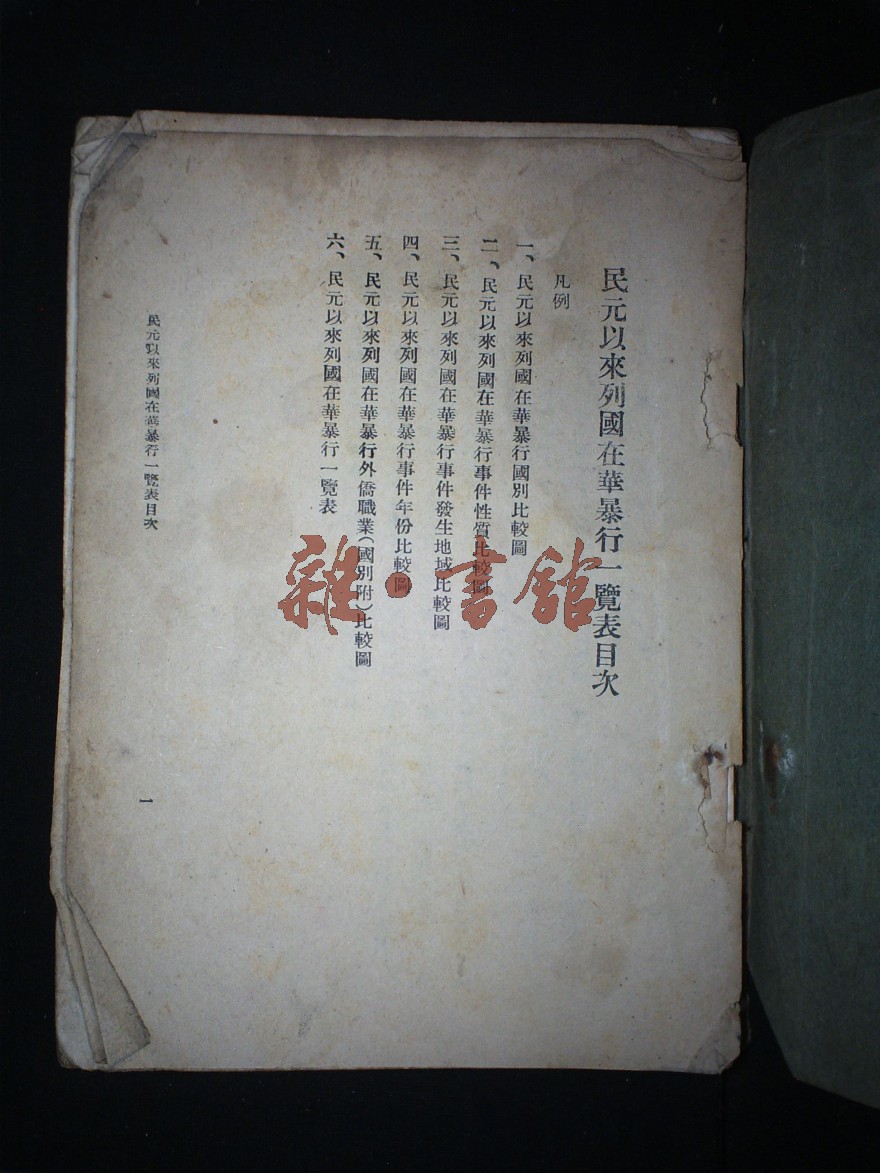 民元以來列國在華暴行一覽表目次
凡例
一、民元以來列國在華暴行國別比較圖
二、民元以來列國在華暴行事件性質比較圖
三、民元以來列國在華暴行事件發生地域比較圖
四、民元以來列國在華暴行事件年份比較圖
五、民元以來列國在華暴行外僑職業（國別附）比較圖
六、民元以來列國在華暴行一覽表
民元以來列國在華暴行一覽表目次
一
雜·書館